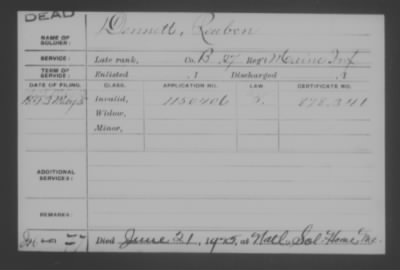 DEAD
NAME OF SOLDIER: Dennett, Reuben
SERVICE: Late rank, Co. B 27 Reg't Maine Inf
TERM OF SERVICE: Enlisted , 1 Discharged , 1
DATE OF FILING. CLASS. APPLICATION NO. LAW CERTIFICATE NO.
Invalid, 1150406 878,341
Widow,
Minor,
ADDITIONAL SERVICES:
REMARKS:
Died June 21, 1925, at Natl. Sol. Home Me.